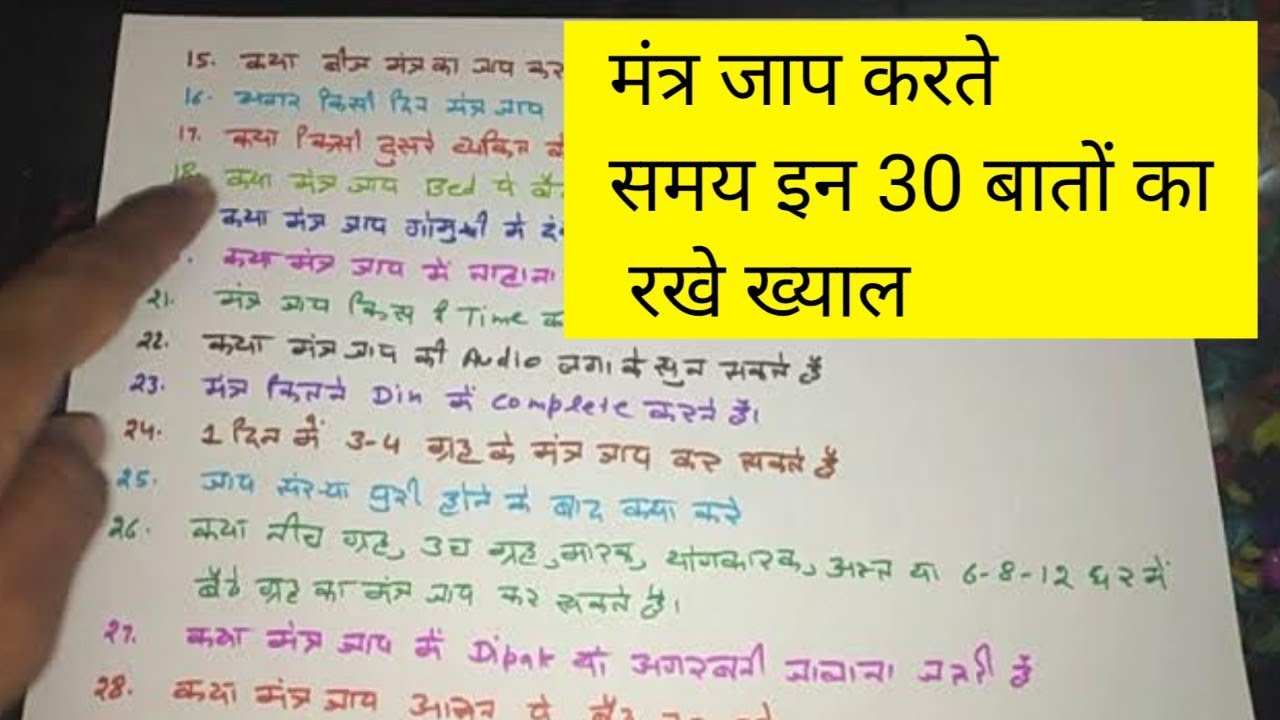 मंत्र जाप करते
समय इन 30 बातों का
रखे ख्याल
15. क्या बीज मंत्र का जाप कर
16. अगर किसी दिन मंत्र जाप
17. क्या किसी दुसरे व्यक्ति के
18. क्या मंत्र जाप Bed पे बै
क्या मंत्र जाप गोमुखी मे
क्या मंत्र जाप में नाहाना
21. मंत्र जाप किस 2 Time क
22. क्या मंत्र जाप की Audio लगा के सुन सकते है
23. मंत्र कितने Din में complete करने है।
24. 1 दिन में 3-4 ग्रह के मंत्र जाप कर सकते है
25. जाप संख्या पुरी होने के बाद क्या करे
26. क्या नीच ग्रह, उच ग्रह, मारक, योगकारक, अस्त या 6-8-12 घर में
बैठे ग्रह का मंत्र जाप कर सकते है।
27. क्या मंत्र जाप में Dipak या अगरबत्ती जलाना जरुरी है
28. क्या मंत्र जाप आसन पे बैठ